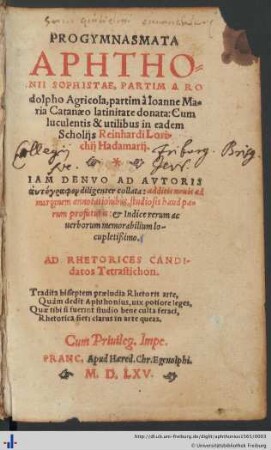 PROGYMNASMATA
APHTHO-
NII SOPHISTAE, PARTIM A RO
dolpho Agricola, partim à Ioanne Ma-
ria Catanæo latinitate donata: Cum
luculentis & utilibus in eadem
Scholijs Reinhardi Lori-
chij Hadamarij.
Collegij Friburg. Brisg.
IAM DENVO AD AVTORIS
diligenter collata: additis
marginem annotatiunculis, studiosis haud pa-
rum profuturis: & Indice rerum ac
uerborum memorabilium lo-
cupletißimo.
AD RHETORICES CANDI-
datos Tetrastichon.
Tradita bisseptem præludia Rhetoris arte,
Quàm dedit Aphthonius, uix potiore leges,
Quæ tibi si fuerint studio bene culta feraci,
Rhetorica fies clarus in arte queas.
Cum Priuileg. Impe.
FRANC. Apud Hæred. Chr. Egenolphi.
M. D. LXV.
http://dl.ub.uni-freiburg.de/diglit/aphthonius1565/0003
Universitätsbibliothek Freiburg